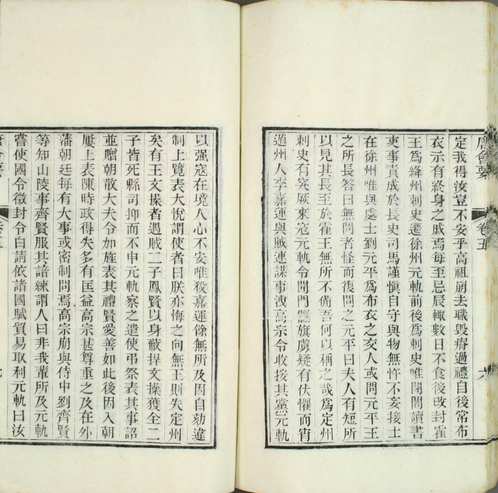 唐會要 卷五
定我得汝豈不安乎高祖崩去職毀瘠過禮自後常布
衣示有終身之戚焉每至忌辰輒數日不食後改封霍
王為絳州刺史尋遷徐州元軌前後為刺史唯閉閤讀書
吏事責成於長史司馬謹慎自守與物無忤不妄接士
在徐州唯與處士劉元平為布衣之交人或問元平王
之所長答曰無問者怪而復問之元平曰夫人有短所
以見其長至於霍王無所不備吾何以稱之哉為定州
刺史突厥來寇元軌令開門偃旗虜疑有伏懼而宵
遁州人李嘉運與賊連謀事洩高宗令收按其黨元軌
以強寇在境人心不安唯殺嘉運餘無所及因自劾違
制上覽表大悅謂使者曰朕亦悔之向無王則失定州
矣有王文操者遇賊二子鳳賢以身蔽捍文操獲全二
子皆死縣司抑而不申元軌察之遣使弔祭表其事詔
並贈朝散大夫令如旌表其禮賢愛善如此後因入朝
屢上表陳時政得失多有匡益高宗甚尊重之及在外
藩朝廷每有大事或密制問焉高宗崩與侍中劉齊賢
等知山陵事齊賢服其諳練謂人曰非我輩所及元軌
嘗使國令徵封令白請依諸國賦貿易取利元軌曰汝